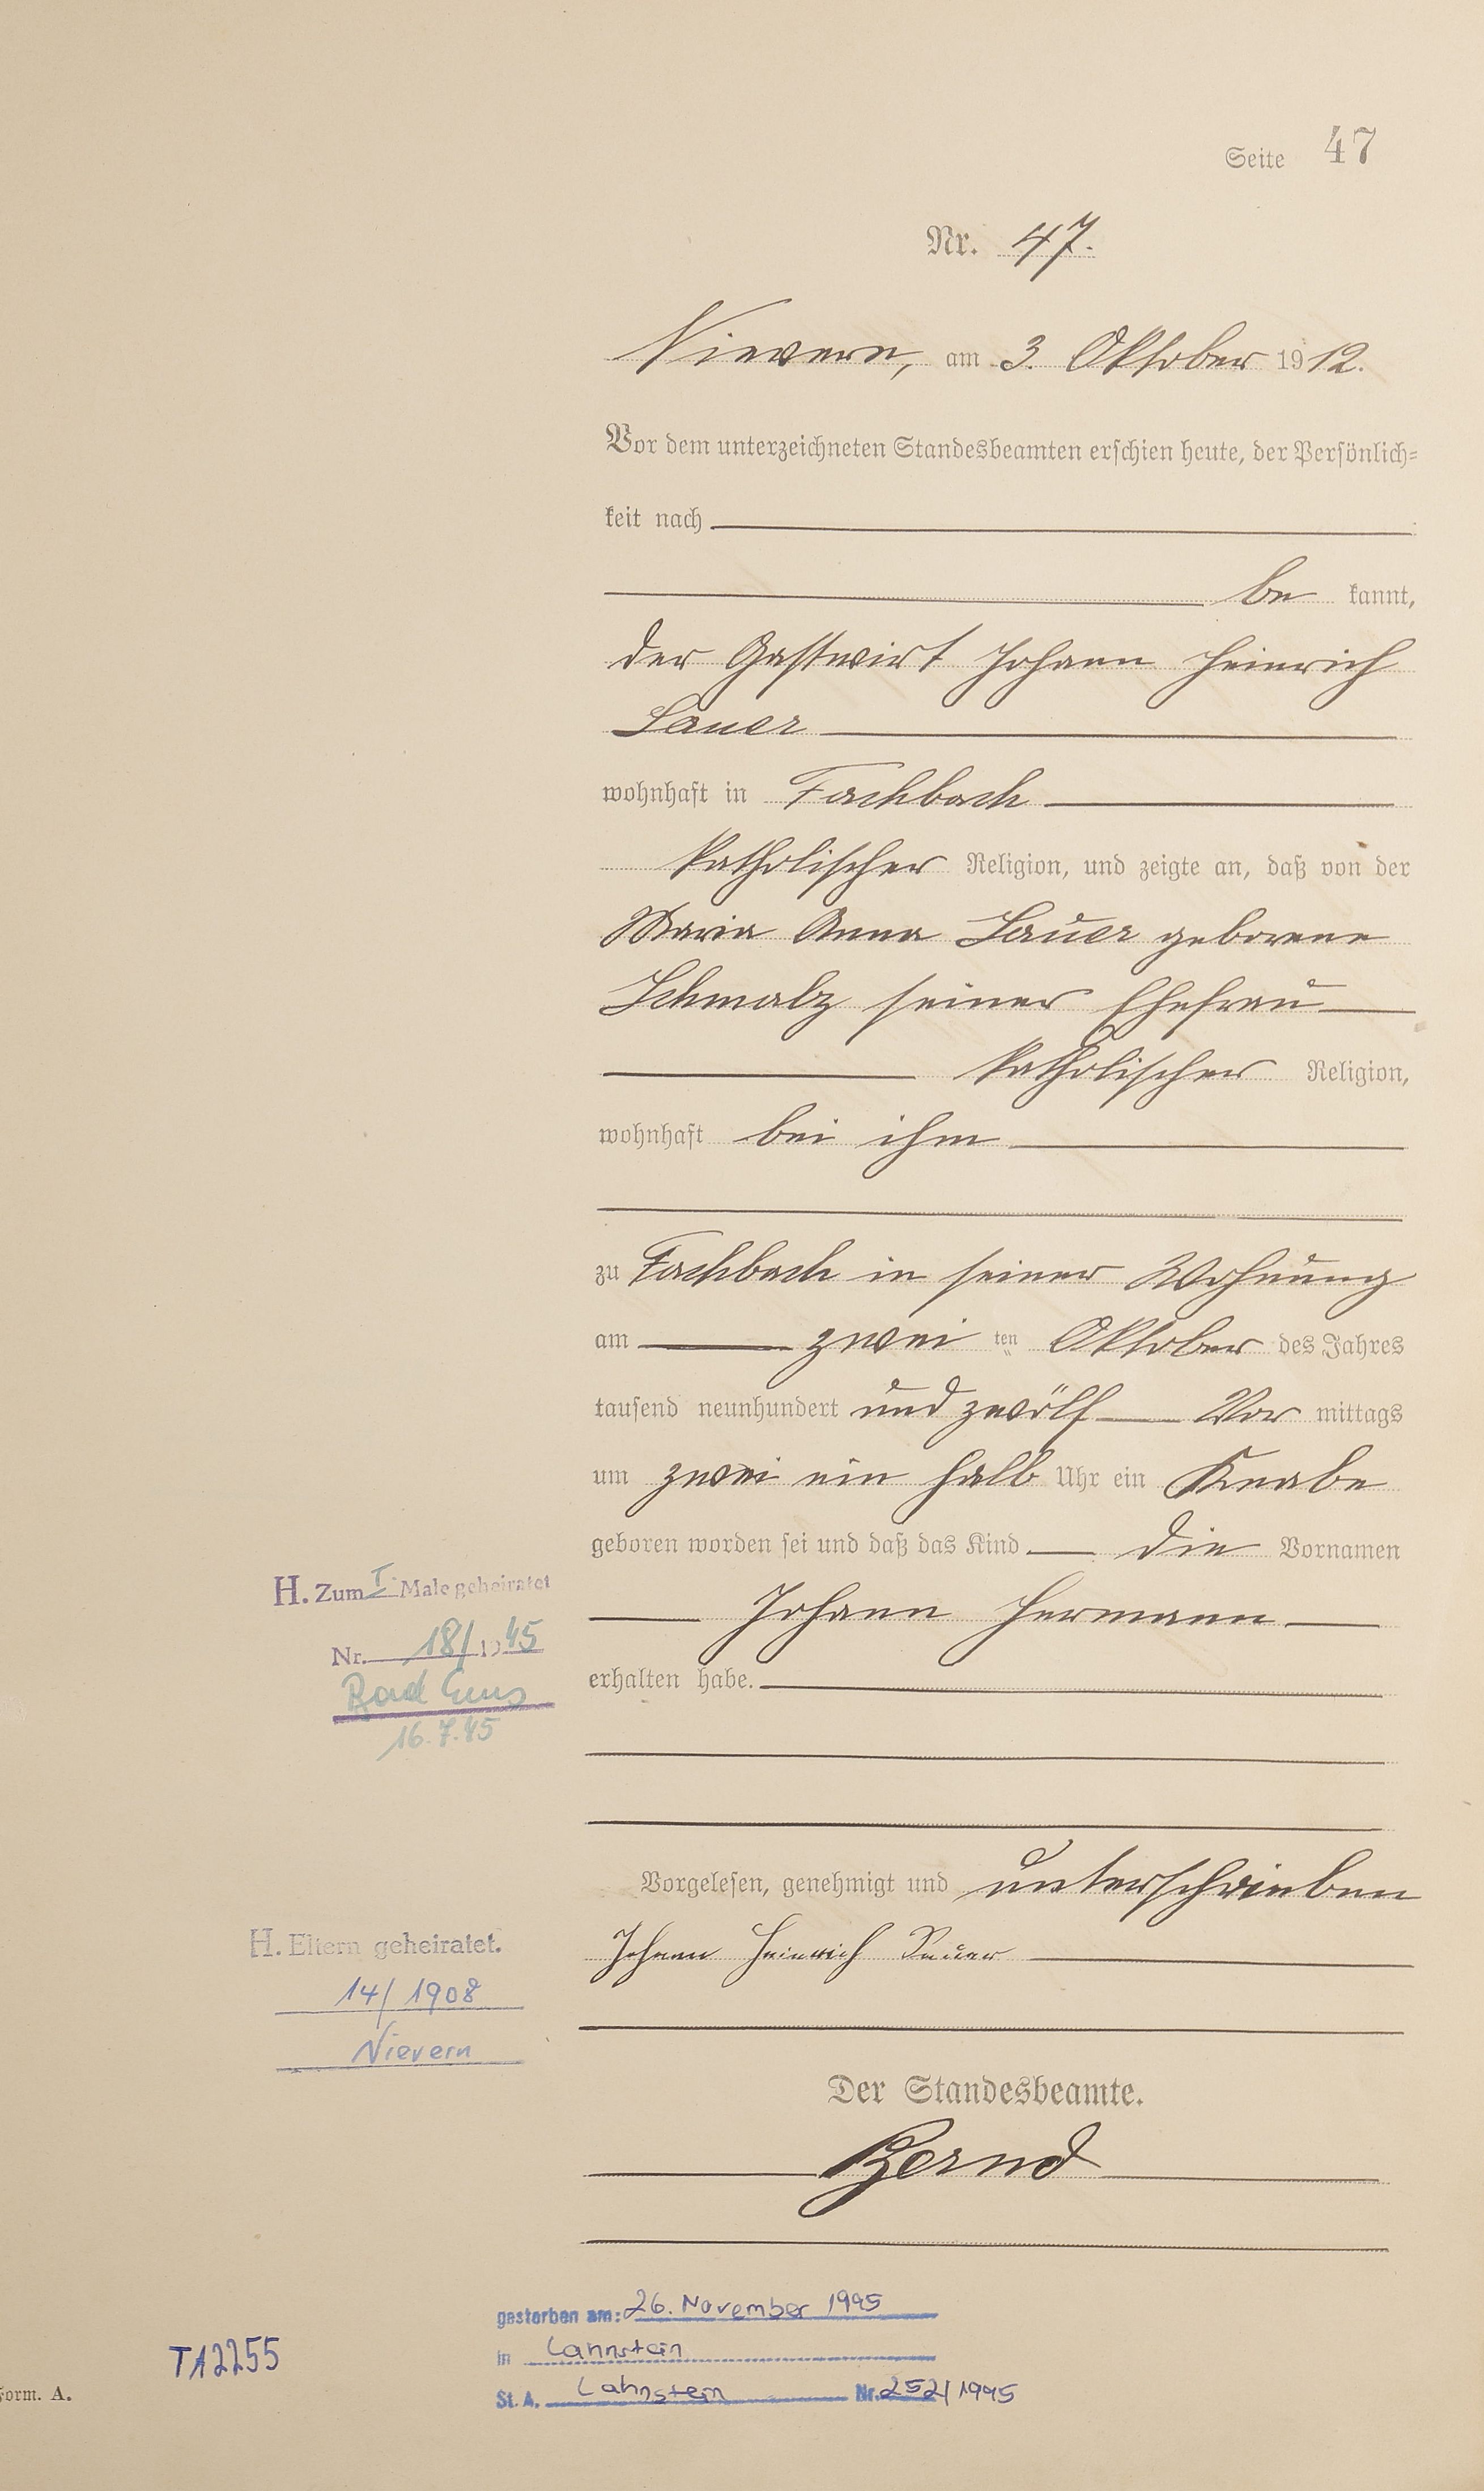 Seite 47
Nr. 47.
Nievern, am 3. Oktober 1912.
Vor dem unterzeichneten Standesbeamten erschien heute, der Persönlich=
keit nach
be kannt,
der Gastwirt Johann Heinrich
Sauer
wohnhaft in Fachbach
katholischer Religion, und zeigte an, daß von der
Maria Anna Sauer geborene
Schmalz seiner Ehefrau
katholischer Religion,
wohnhaft bei ihm
zu Fachbach in seiner Wohnung
am zwei ten Oktober des Jahres
tausend neunhundert und zwölf Vor mittags
um zwei ein halb Uhr ein Knabe
geboren worden sei und daß das Kind die Vornamen
Johann Hermann
erhalten habe.
Vorgelesen, genehmigt und unterschrieben
Johann Heinrich Sauer
Der Standesbeamte.
Bernd
H. Zum I. Male geheiratet
Nr. 18/1945
Bad Ems
16.7.45
H. Eltern geheiratet.
14/1908
Nievern
gestorben am: 26. November 1995
in Lahnstein
St. A. Lahnstein Nr. 252/1995
TA2255
Form. A.